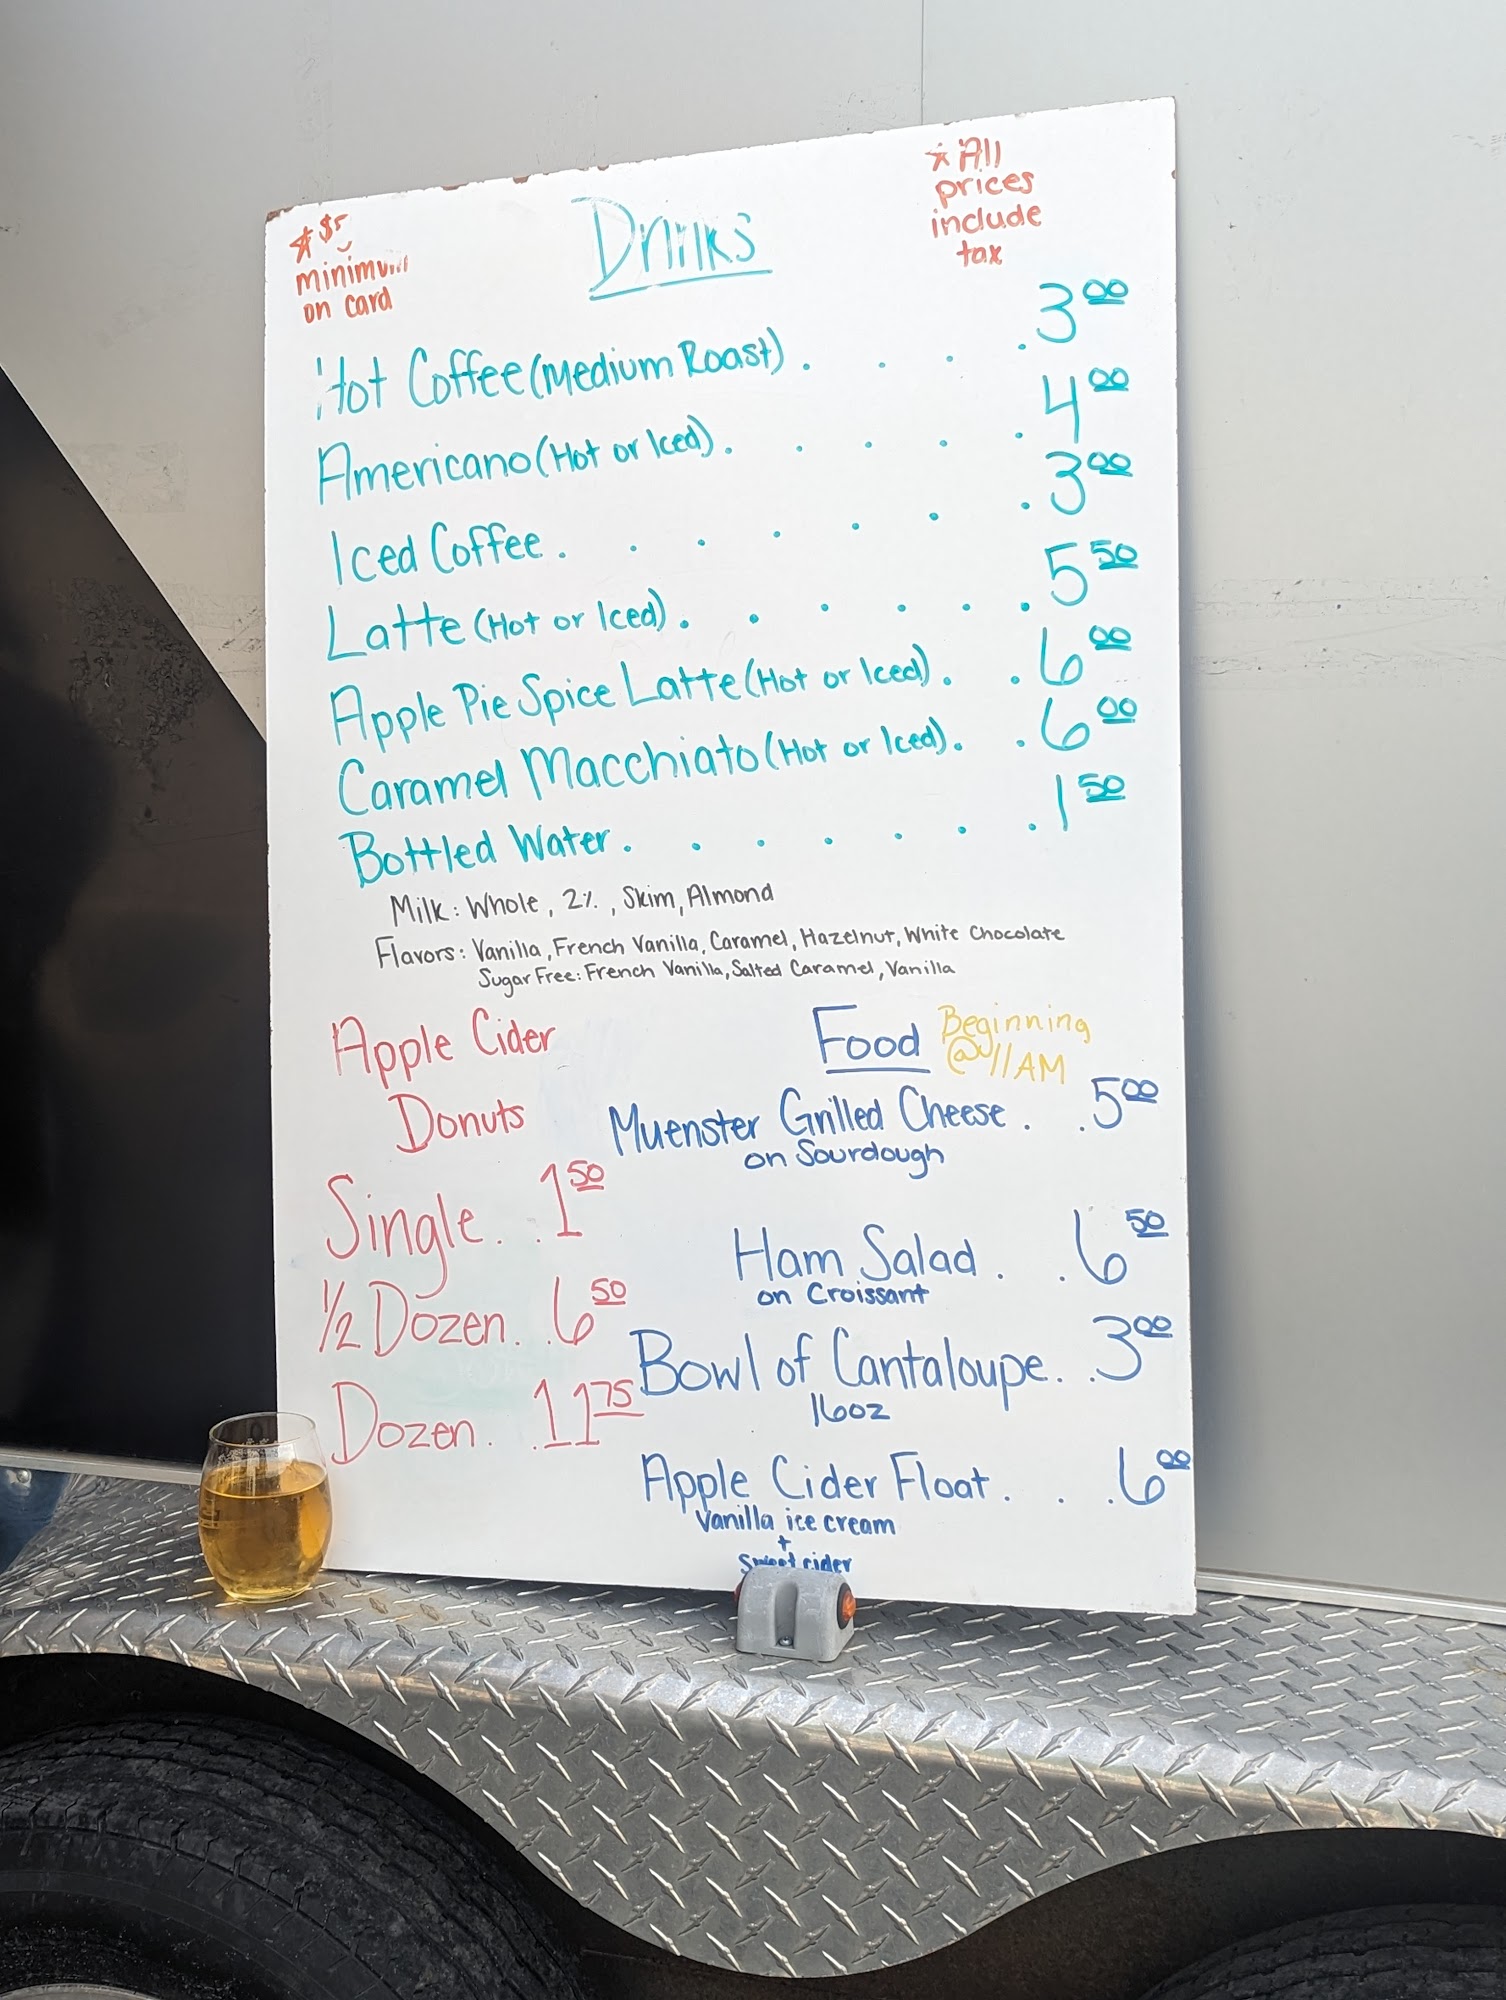 ★ $5
minimum
on card
Drinks
★ All
prices
include
tax
Hot Coffee (Medium Roast) . . . . 3 00
Americano (Hot or Iced) . . . . . 4 00
Iced Coffee . . . . . . . 3 00
Latte (Hot or Iced) . . . . . . 5 50
Apple Pie Spice Latte (Hot or Iced) . . 6 00
Caramel Macchiato (Hot or Iced) . . 6 00
Bottled Water . . . . . . . 1 50
Milk: Whole, 2%, Skim, Almond
Flavors: Vanilla, French Vanilla, Caramel, Hazelnut, White Chocolate
Sugar Free: French Vanilla, Salted Caramel, Vanilla
Apple Cider
Donuts
Single . . 1 50
1/2 Dozen . . 6 50
Dozen . . 11 75
Food Beginning
@ 11 AM
Muenster Grilled Cheese . . 5 00
on Sourdough
Ham Salad . . 6 50
on Croissant
Bowl of Cantaloupe . . 3 00
16oz
Apple Cider Float . . . 6 00
Vanilla ice cream
+
Sweet cider